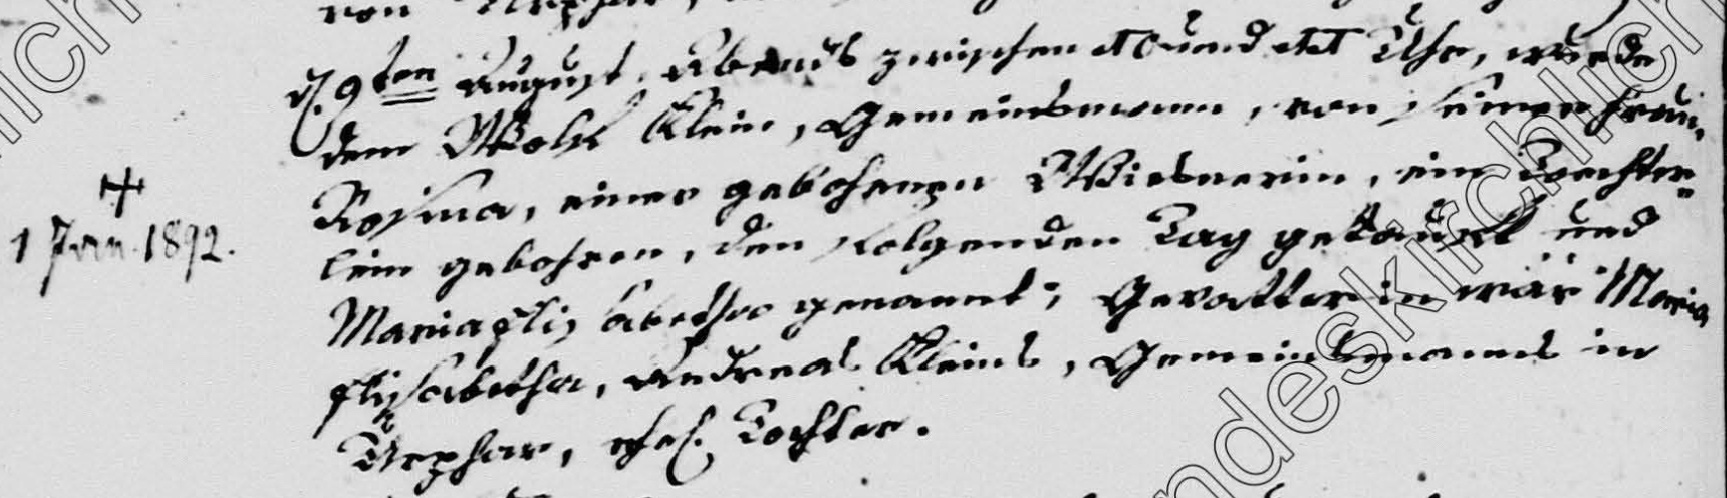 von Urphar,
d. 9ten August, Abends zwischen 10 und 11 Uhr, wurde
dem Wolf Klein, Gemeindsmann, von seiner Frau,
Rosina, einer gebohrnen Wiesnerin, ein Töchter=
lein gebohren, den folgenden Tag getauft und
Maria Elisabetha genannt; Gevatterin war Maria
Elisabetha, Andreas Kleins, Gemeindsmanns in
Urphar, ehel. Tochter.
+
1 Jan. 1892.